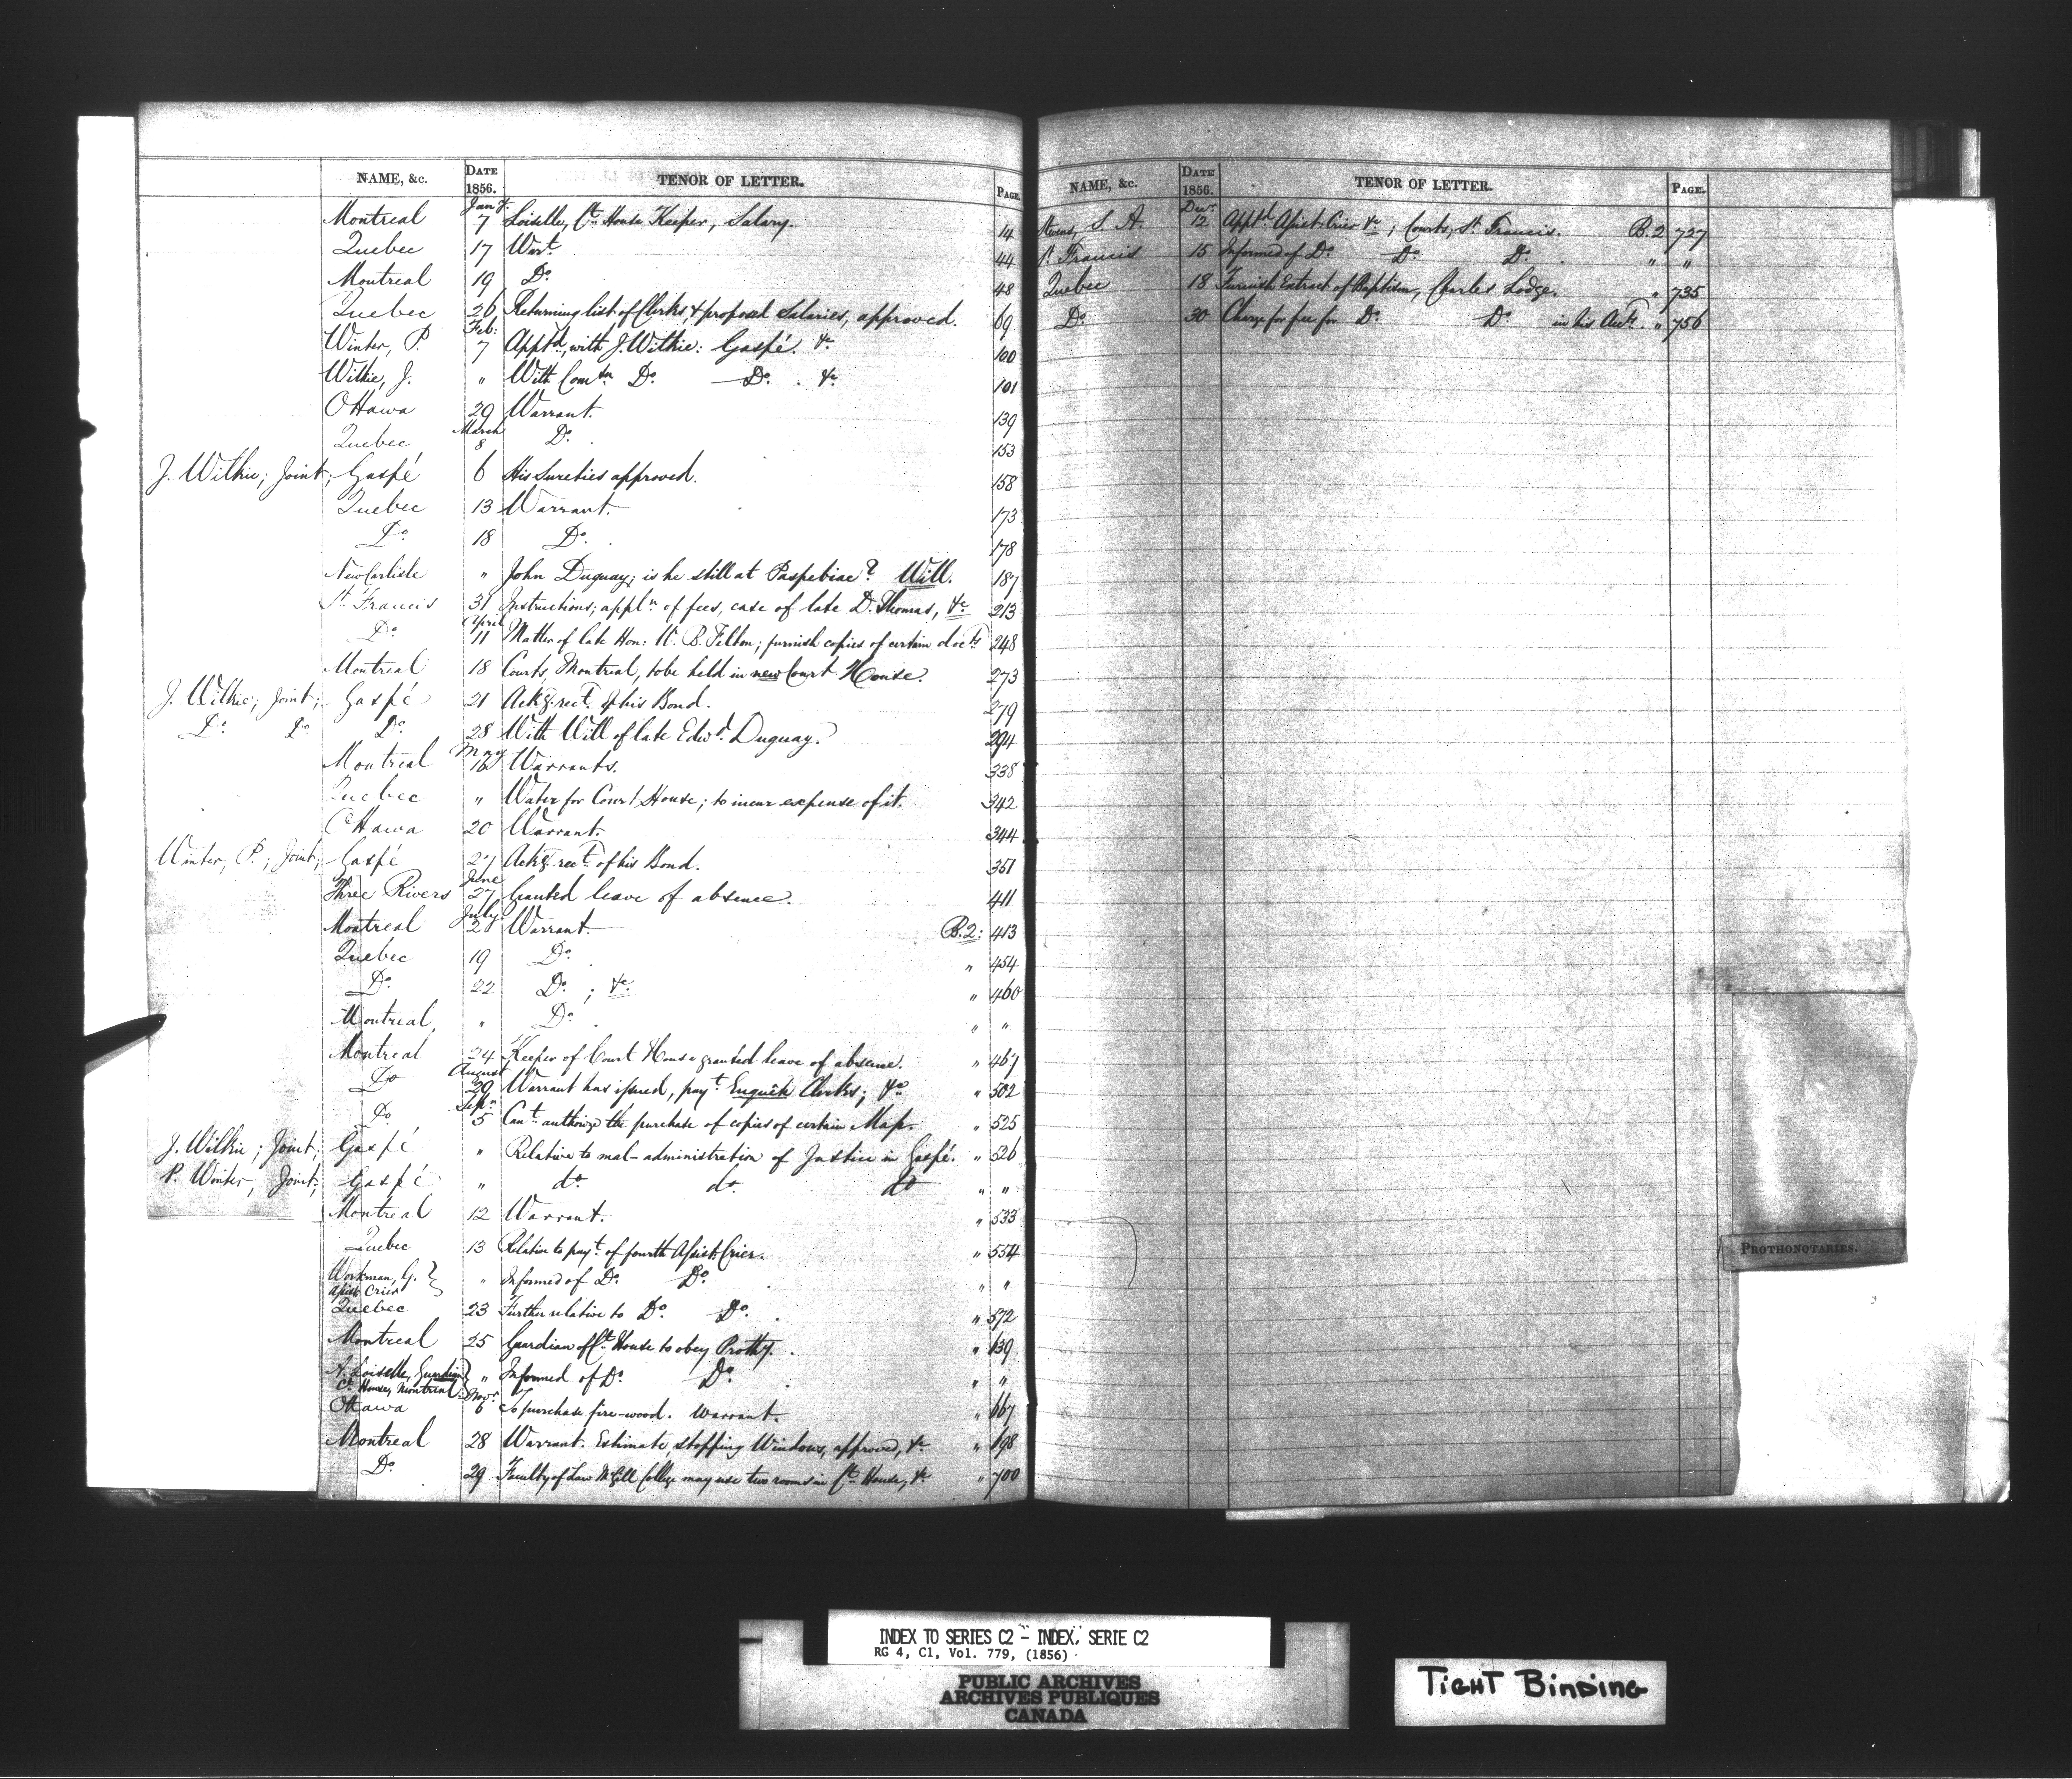 NAME, &c. DATE 1856. TENOR OF LETTER. PAGE.
Jany.
Montreal 7 Loiselle, Ct. House Keeper, Salary. 14
Quebec 17 Wart. 44
Montreal 19 Do. 48
Quebec 26 Returning list of Clerks, & proposed Salaries, approved. 69
Feb:
Winter, P. 7 Apptd., with J. Wilkie: Gaspé. &c 100
Wilkie, J. " With Comtn Do. Do. . &c 101
Ottawa 29 Warrant. 139
March
Quebec 8 Do. 153
J. Wilkie; Joint; Gaspé 6 His Sureties approved. 158
Quebec 13 Warrant. 173
Do. 18 Do. 178
New Carlisle " John Duguay; is he still at Paspebiac? Will. 187
St. Francis 31 Instructions; appln. of fees, case of late D. Thomas, &c 213
April
Do. 11 Matter of late Hon: W. B. Felton; furnish copies of certain docts. 248
Montreal 18 Courts, Montreal, to be held in new Court House. 273
J. Wilkie; Joint; Gaspé 21 Ackg. rect. of his Bond. 279
Do. Do. Do. 28 With Will of late Edwd. Duguay. 294
May
Montreal 16 Warrants. 338
Quebec " Water for Court House; to incur expense of it. 342
Ottawa 20 Warrant. 344
Winter, P.; Joint; Gaspé 27 Ackg. rect. of his Bond. 361
June
Three Rivers 27 Granted leave of absence. 411
July
Montreal 2 Warrant. B.2: 413
Quebec 19 Do. " 454
Do. 22 Do. ; &c. " 460
Montreal, " Do. " "
Montreal 24 Keeper of Court House granted leave of absence. " 467
August
Do 20 Warrant has issued, payt. Enquête Clerks; &c " 502
Septr.
Do. 5 Cant. authorize the purchase of copies of certain Map. " 525
J. Wilkie; Joint; Gaspé " Relative to mal-administration of Justice in Gaspé. " 526
P. Winter, Joint; Gaspé " do. do. do " "
Montreal 12 Warrant. " 533
Quebec 13 Relative to payt. of fourth Assist. Crier. " 554
Workman, G. Assist. Crier " Informed of Do. Do. " "
Quebec 23 Further relative to Do. Do. " 572
Montreal 25 Guardian of Ct. House to obey Prothy. " 639
A. Loiselle, Guardian Ct. House, Montreal " Informed of Do. Do. " "
Novr.
Ottawa 6 To purchase fire-wood. Warrant. " 667
Montreal 28 Warrant. Estimate, stopping Windows, approved, &c " 698
Do. 29 Faculty of Law McGill College may use two rooms in Ct. House, &c " 700
NAME, &c. DATE 1856. TENOR OF LETTER. PAGE.
Decr.
Stevens, S. A. 12 Apptd. Assist. Crier &c; Courts, St. Francis. B.2 727
St. Francis 15 Informed of Do. Do. Do. " "
Quebec 18 Furnish Extract of Baptism, Charles Lodge. " 735
Do. 30 Charge for fee for Do. Do. in his Acct. " 756
PROTHONOTARIES.
INDEX TO SERIES C2 - INDEX, SERIE C2
RG 4, C1, Vol. 779, (1856)
PUBLIC ARCHIVES
ARCHIVES PUBLIQUES
CANADA
TIGHT BINDING